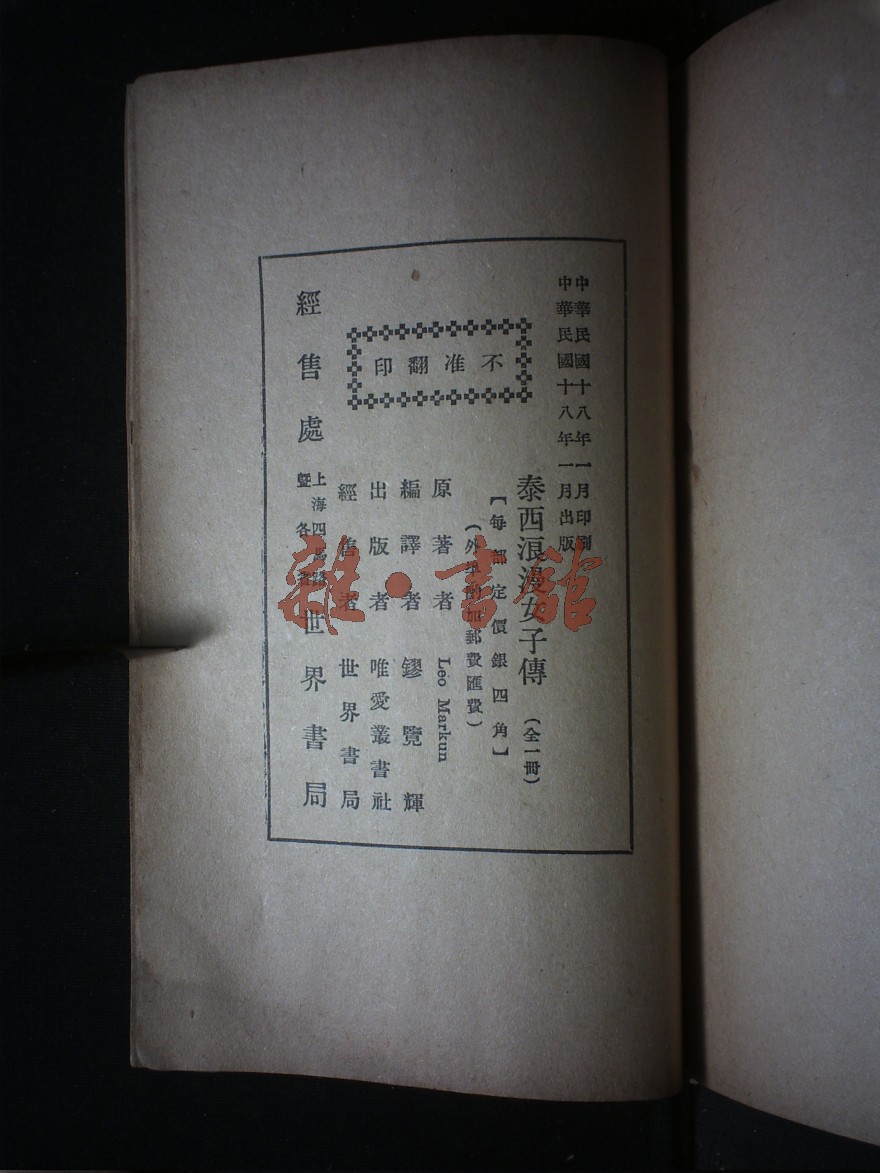 中華民國十八年一月印刷
中華民國十八年一月出版
泰西浪漫女子傳（全一冊）
【每部定價銀四角】
（外埠酌加郵費匯費）
不准翻印
原著者 Leo Markun
編譯者 鏐覽輝
出版者 唯愛叢書社
經售者 世界書局
經售處 上海四馬路暨各省 世界書局
雜·書館